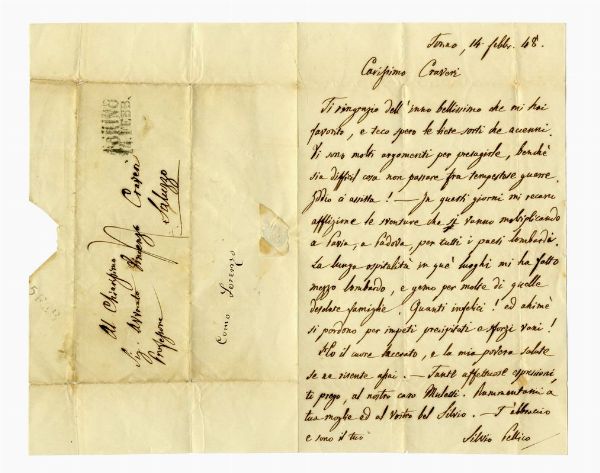 Torino, 14 febbr. 48.
Carissimo Craveri
Ti ringrazio dell'inno bellissimo che mi hai
favorito, e teco spero le liete sorti che accenni.
Vi sono molti argomenti per presagirle, benchè
sia difficil cosa non passare fra tempestose guerre.
Iddio ci assista! — In questi giorni mi recano
afflizione le sventure che si vanno moltiplicando
a Pavia, a Padova, per tutti i paesi lombardi.
La lunga ospitalità in que' luoghi mi ha fatto
mezzo lombardo, e gemo per molte di quelle
desolate famiglie. Quanti infelici! ed ahimè
si perdono per impeti precipitati e sforzi vani!
Ho il cuore lacerato, e la mia povera salute
se ne risente assai. — Tante affettuose espressioni,
ti prego, al nostro caro Mulassi. Rammentami a
tua moglie ed al vostro bel Silvio. — T'abbraccio
e sono il tuo
Silvio Pellico
TORINO
14 FEBB.
Al Chiarissimo
Sig. Avvocato Craveri
Professore
Saluzzo
Como Lorenzo